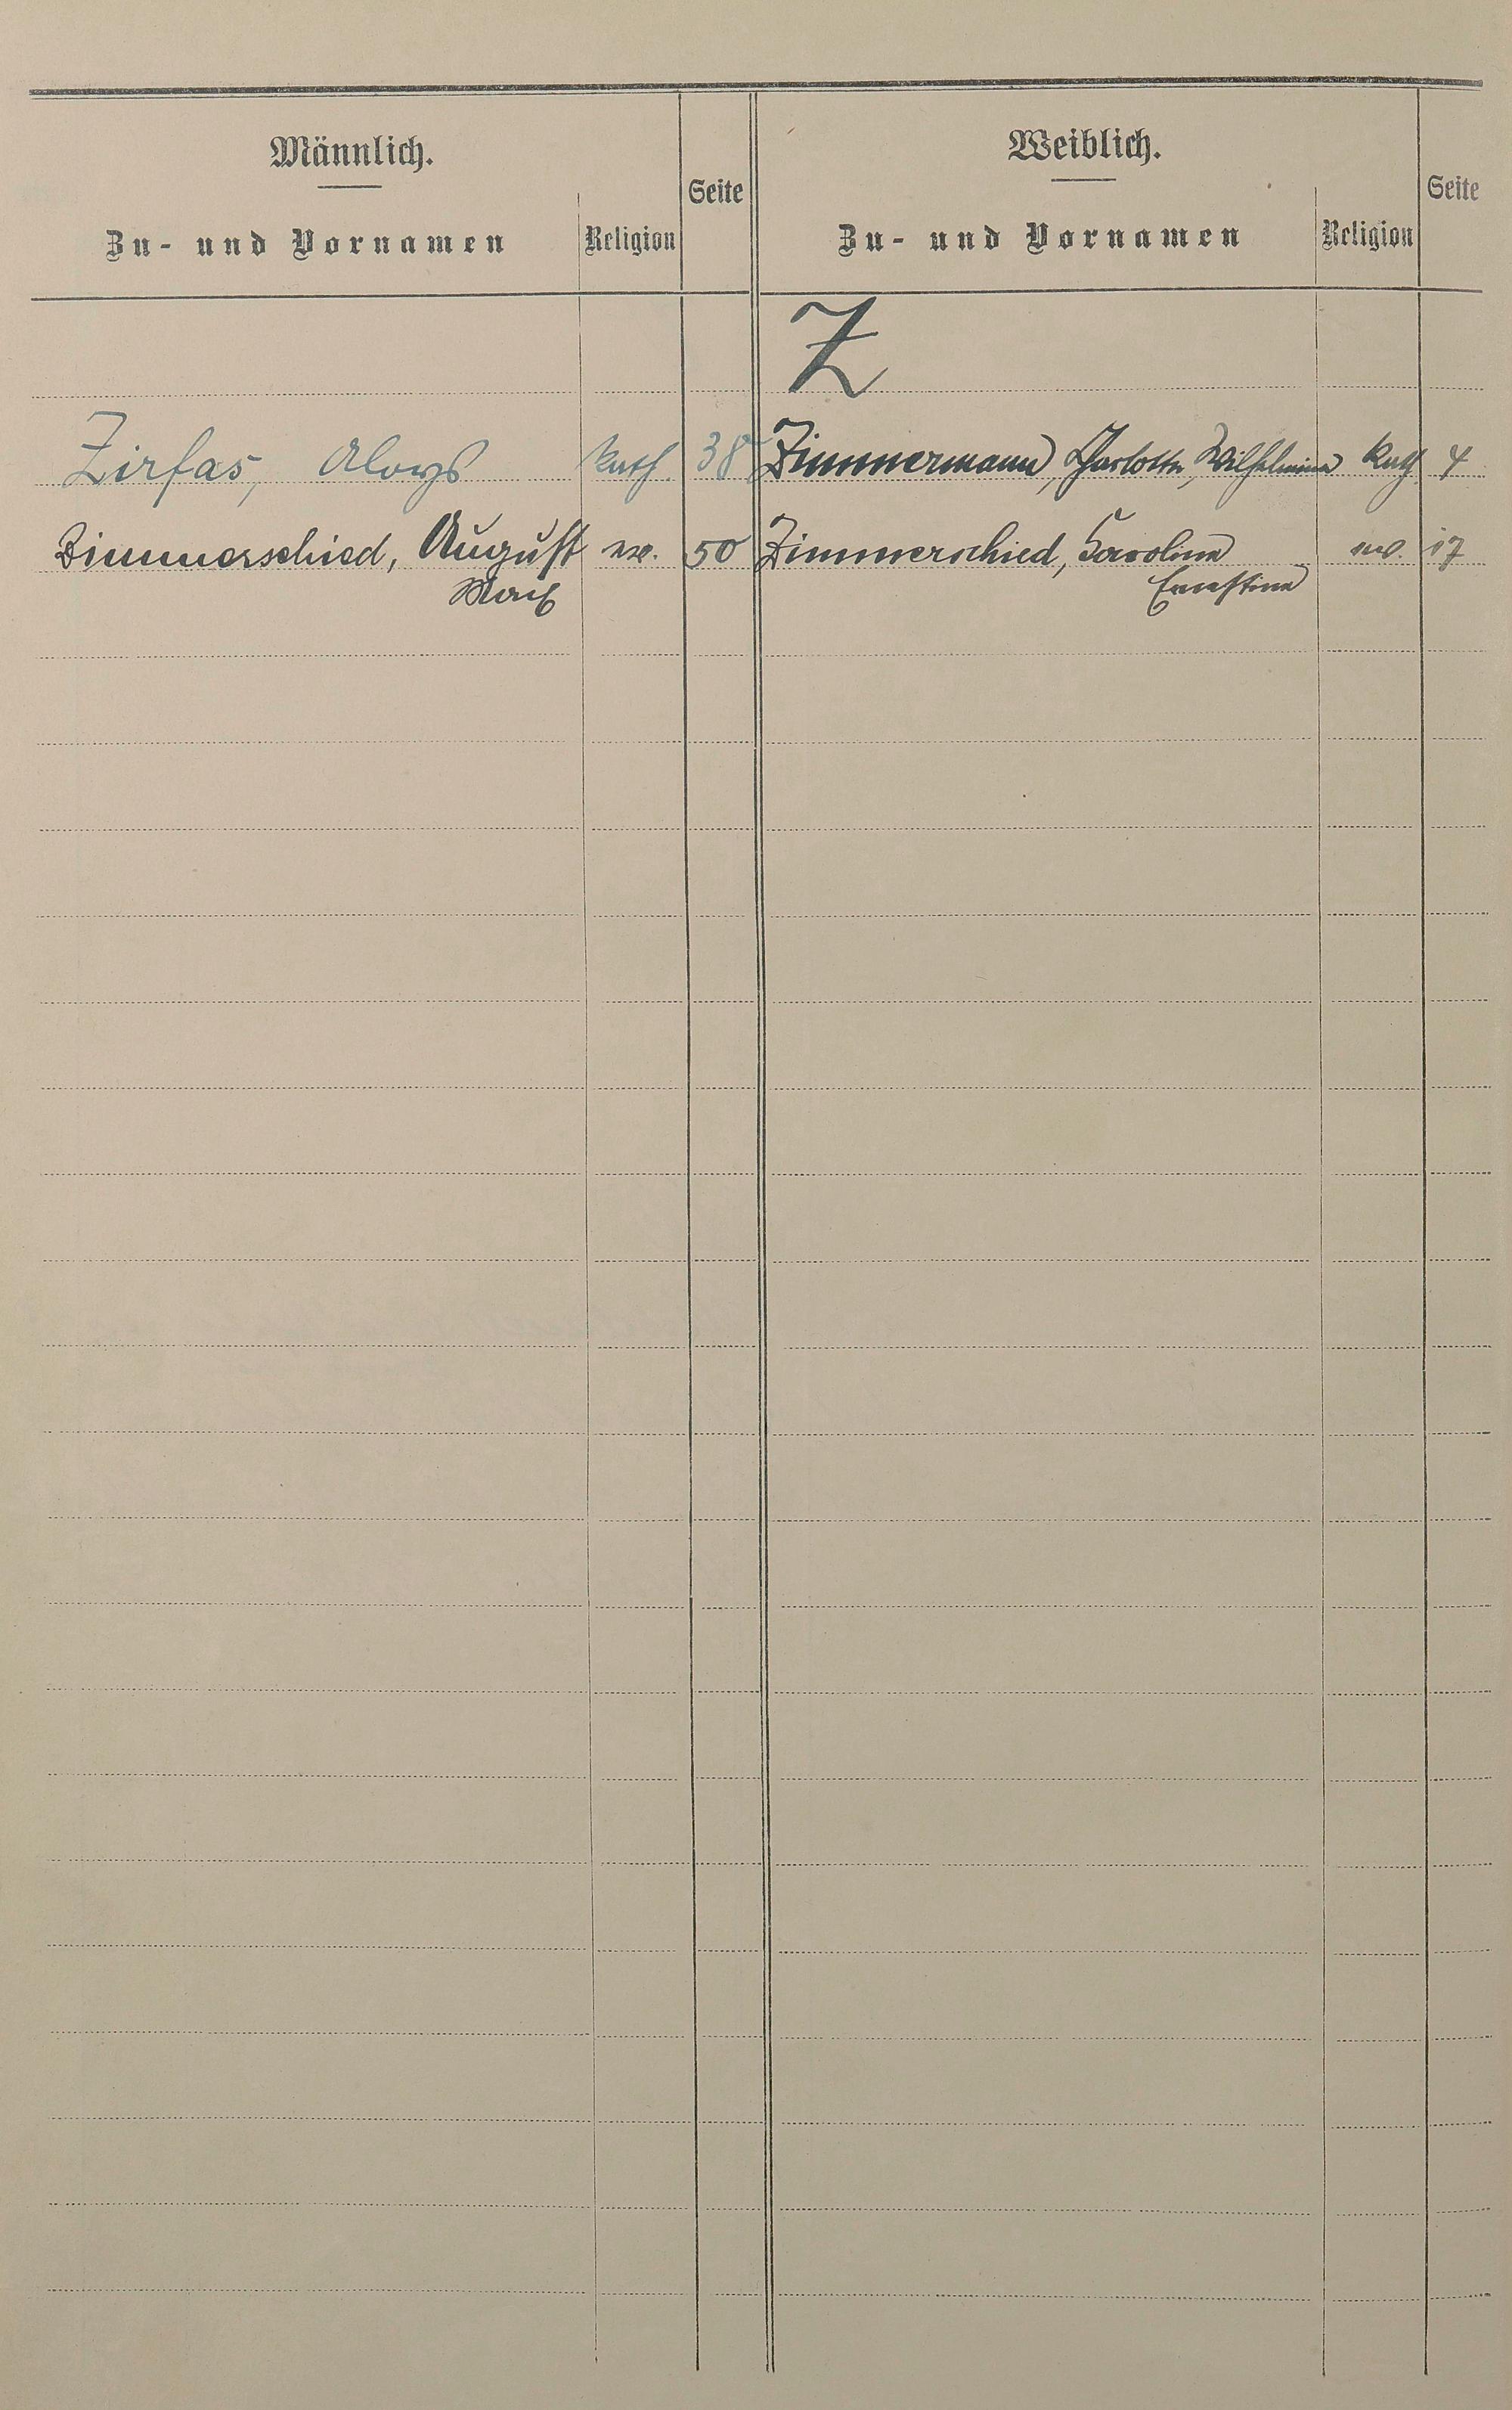 Männlich.
Zu- und Vornamen
Religion
Seite
Weiblich.
Zu- und Vornamen
Religion
Seite
Z
Zirfas, Aloys kath. 38
Zimmermann, Charlotte, Wilhelmine kath 4
Zimmerschied, August ev. 50
Zimmerschied, Karoline ev. 17
Ernestine